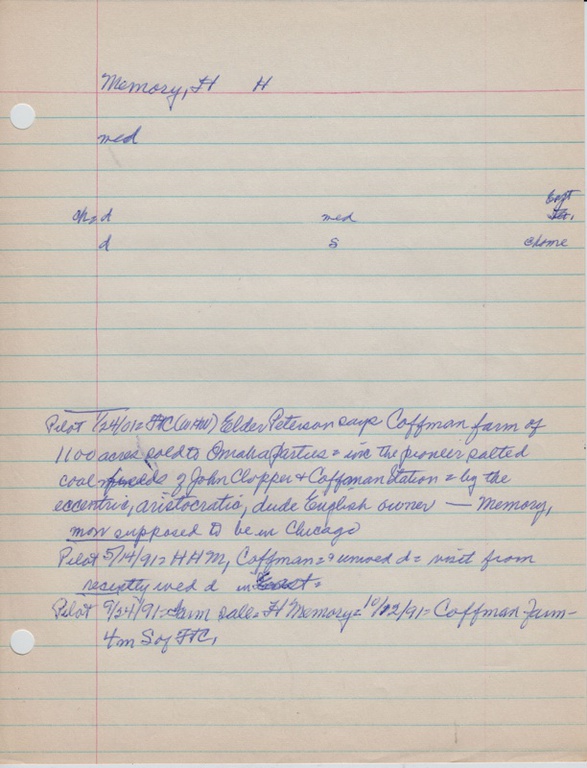 Memory, H H
med
ch = d med Capt
d S chome
Pilot 1/24/01 = FtC (WHW) Elder Peterson says Coffman farm of
1100 acres sold to Omaha parties = inc the pioneer salted
coal fields of John Clopper & Coffman Station = by the
eccentric, aristocratic, dude English owner — Memory,
now supposed to be in Chicago
Pilot 5/14/91 = H H M, Coffman = & unwed d = visit from
recently wed d in East =
Pilot 9/24/91 = Farm sale = H Memory = 10/22/91 = Coffman Farm -
4 m S of FtC,